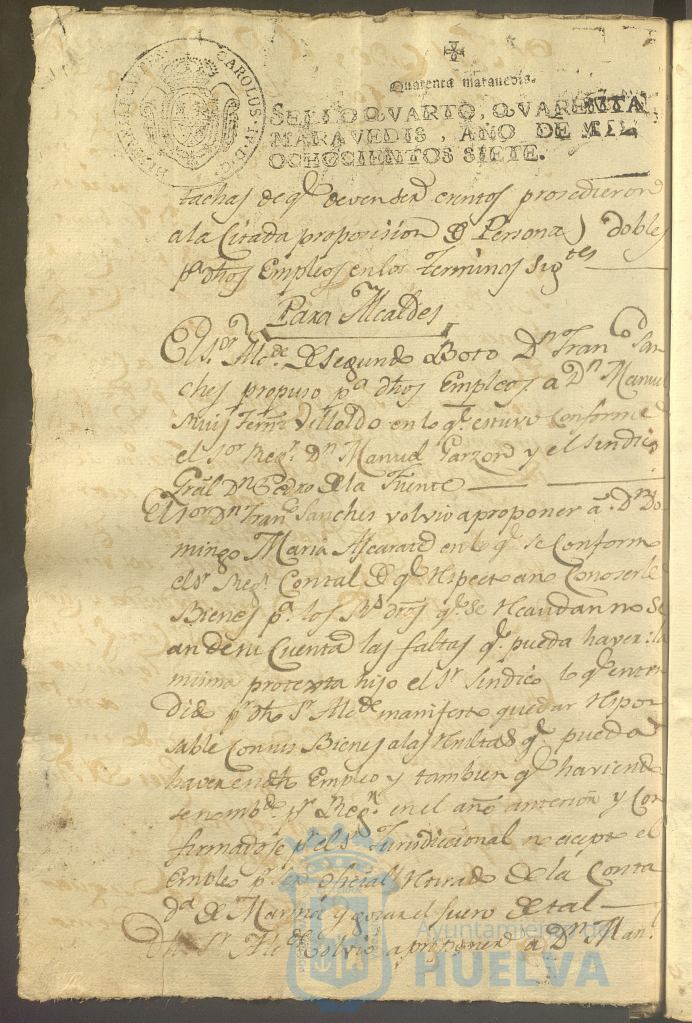 CAROLUS IV D G
Quarenta maravedis.
SELLO QVARTO, QVARENTA
MARAVEDIS, AÑO DE MIL
OCHOCIENTOS SIETE.
tachas de q.e deven ser esentos prosedieron
a la Citada proposision de Personas dobles
p.a dhos Empleos en los Terminos sig.tes
Para Alcaldes
El S.or Alc.de de segundo Boto D.n Fran.co San
ches propuso p.a dhos Empleos a D.n Manuel
Ruiz Fern.z Villoldo en lo q.e estuvo Conforme
el S.or Reg.r D.n Manuel Garzon y el Sindico
Gral D.n Pedro de la Fuente
El S.or D.n Fran.co Sanches volvio a proponer a D.n Do
mingo Maria en lo q.e se Conformo
el S.r Reg.r Con tal de q.e respecto a no Conoserle
Bienes p.a los R.s dros q.e se recaudan no se
an de su Cuenta las faltas q.e pueda haver: la
misma protexta hiso el S.r Sindico lo q.e enten
dido p.r dho S.r Alc.de manifesto quedar respon
sable con sus Bienes a las resultas q.e pueda
haver en dho Empleo y tambien q.e haviendo
se nomb.do p.r Reg.r en el año anterior y Con
firmadose p.r el S.r Jurisdiccional no acepto el
Empleo p.r ser Oficial Retirado de la Conta
d.a de Marina y gosar el fuero de tal
Dho S.r Alc.de volvio a proponer a D.n Man.l
Ayuntamiento de
HUELVA